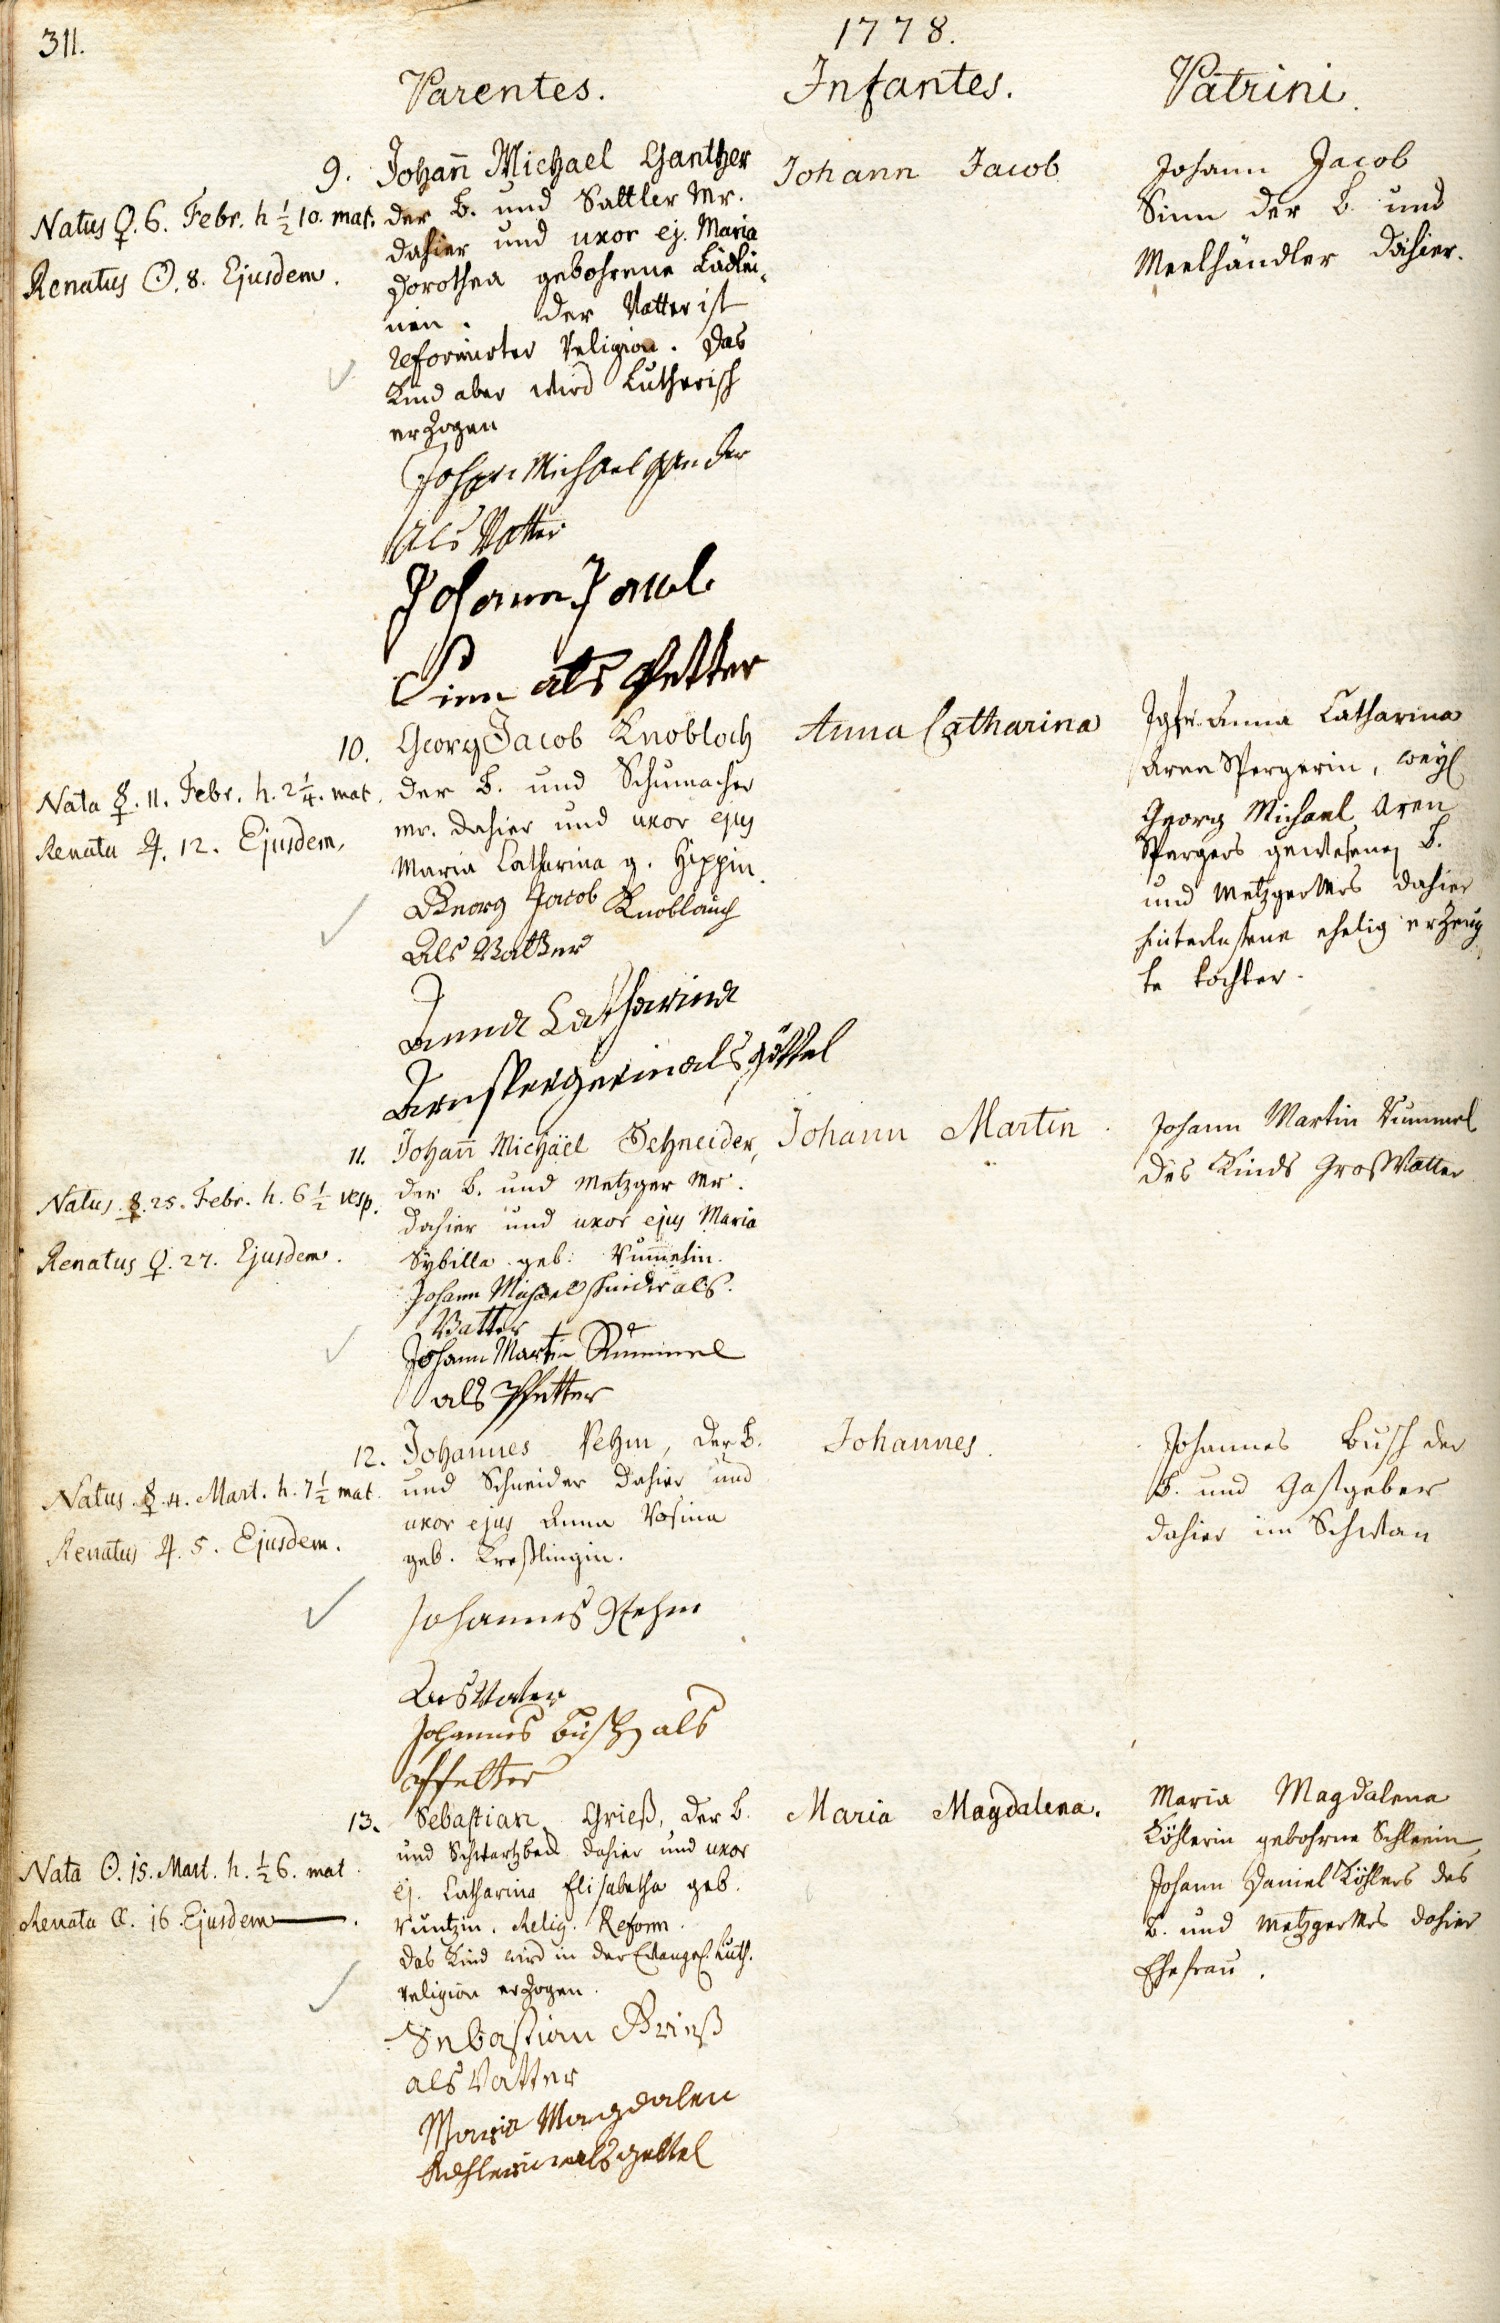 311.
1778.
Parentes.
Infantes.
Patrini.
9.
Natus ♀. 6. Febr. h ½ 10. mat.
Renatus ☉. 8. Ejusdem.
Johan̄ Michael Ganther
der b. und Sattler Mr.
dahier und uxor ej. Maria
Dorothea gebohrene
nin. der Vatter ist
reformirter Religion. Das
Kind aber wird Lutherisch
erzogen
Johann Michael
als Vatter
Johann Jacob
Sinn als Petter
Johann Jacob
Johann Jacob
Sinn der b. und
Meelhändler dahier.
10.
Nata ☿. 11. Febr. h. 2¼. mat.
Renata ♃. 12. Ejusdem.
Georg Jacob Knobloch
der b. und Schumacher
mr. dahier und uxor ejus
Maria Catharina g. Hippin.
Georg Jacob Knoblauch
Als Vatter
Anna Catharina
Arnspergerin als göttel
Anna Catharina
Jgfr. Anna Catharina
Aren Spergerin, weyl.
Georg Michael Aren
Spergers gewesenen b.
und Metzger Mrs dahier
hinterlassene ehelig erzeug
te tochter.
11.
Natus ☿. 25. Febr. h. 6½ vesp.
Renatus ♀. 27. Ejusdem.
Johan̄ Michäel Schneider,
der b. und Metzger Mr.
dahier und uxor ejus Maria
Sybilla geb. Rum̄elin.
Johann Michael Schneider als
Vatter
Johann Martin Rummel
als Pfetter
Johann Martin
Johann Martin Rummel
des Kinds GrosVatter
12.
Natus ☿. 4. Mart. h. 7½ mat.
Renatus ♃. 5. Ejusdem.
Johannes Rehm, der b.
und Schneider dahier und
uxor ejus Anna Rosina
geb. Kreßlingin.
Johannes Rehm
Als Vater
Johannes Busch als
Pfetter
Johannes.
Johannes Busch der
b. und Gastgeber
dahier im Schwan
13.
Nata ☉. 15. Mart. h. ½ 6. mat.
Renata ☾. 16. Ejusdem.
Sebastian Grieß, der b.
und Schwartzbeck dahier und uxor
ej. Catharina Elisabetha geb.
Kuntzin. Relig. Reform.
Das Kind wird in der Evangel. Luth.
religion erzogen.
Sebastian Grieß
als Vatter
Maria Magdalen
Kehlerin als gettel
Maria Magdalena.
Maria Magdalena
Köhlerin gebohrne Schleein,
Johann Daniel Köhlers des
b. und Metzger Mrs dahier
Ehefrau.